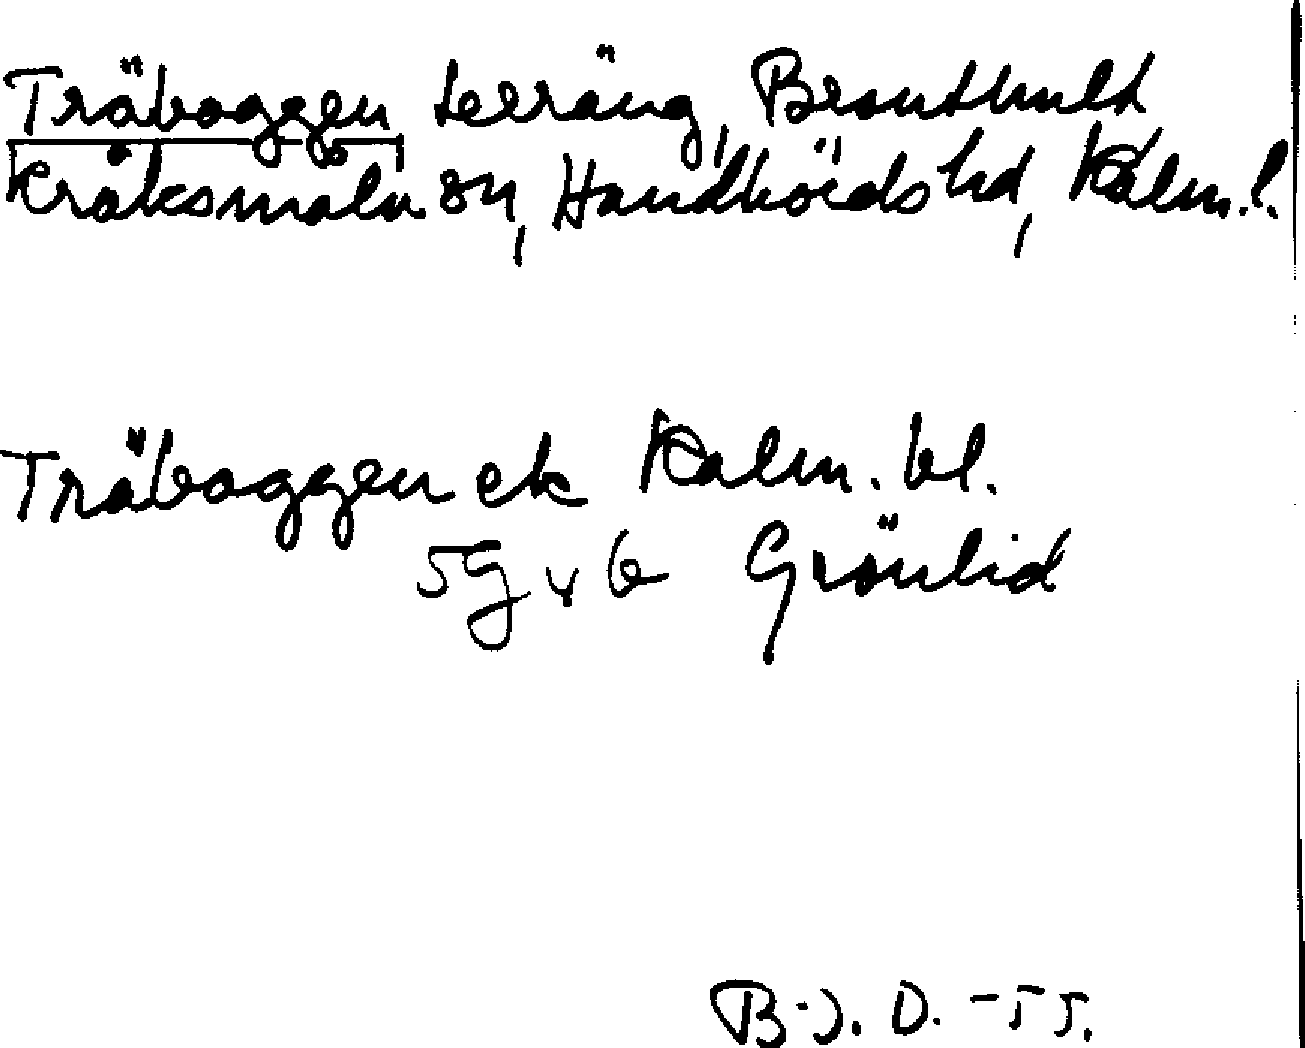 Träboggen terräng, Brouthult
Kråksmåla sn, Handbörds hd, Kalm. l.
Träboggen ek Kalm. bl.
5g v b Grönlid
B-J. D. -55.